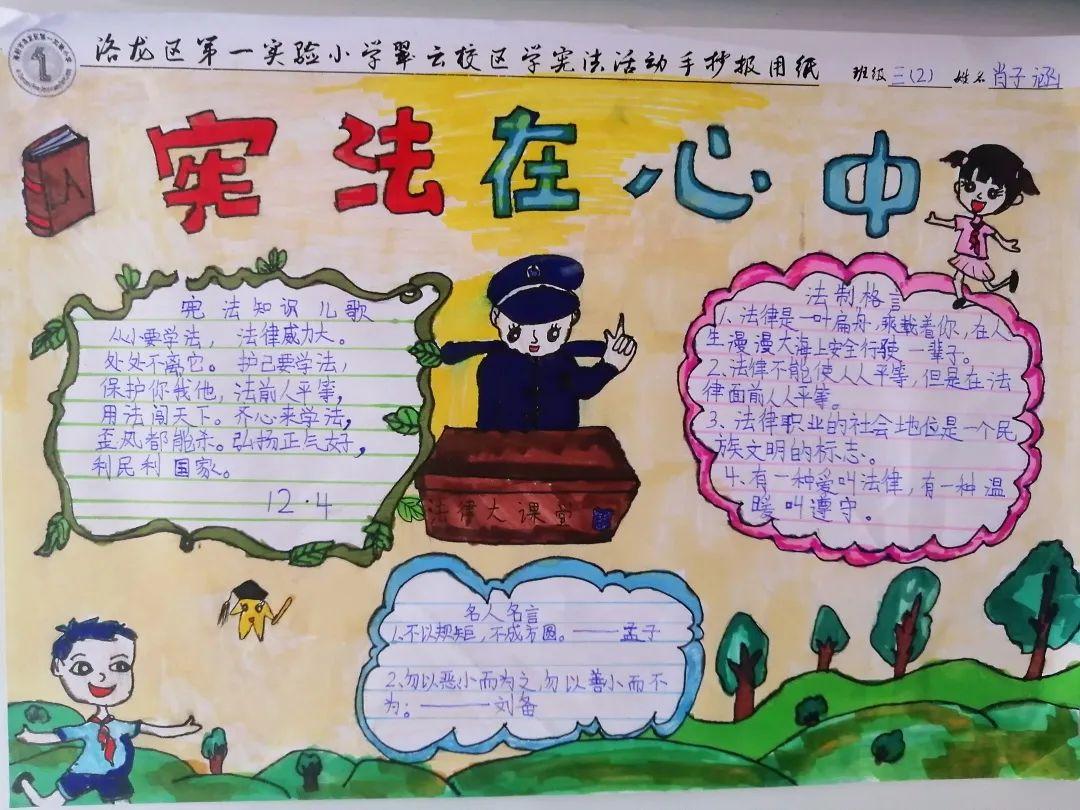 洛龙区第一实验小学翠云校区学宪法活动手抄报用纸 班级 三(2) 姓名 肖子涵
宪法在心中
宪法知识儿歌
从小要学法，法律威力大。
处处不离它。护己要学法，
保护你我他，法前人平等，
用法闯天下。齐心来学法，
歪风都能杀。弘扬正气好，
利民利国家。
12·4
法律大课堂
法制格言
1、法律是一叶扁舟，乘载着你，在人
生漫漫大海上安全行驶一辈子。
2、法律不能使人人平等，但是在法
律面前人人平等。
3、法律职业的社会地位是一个民
族文明的标志。
4、有一种爱叫法律，有一种温
暖叫遵守。
名人名言
1、不以规矩，不成方圆。——孟子
2、勿以恶小而为之，勿以善小而不
为。——刘备